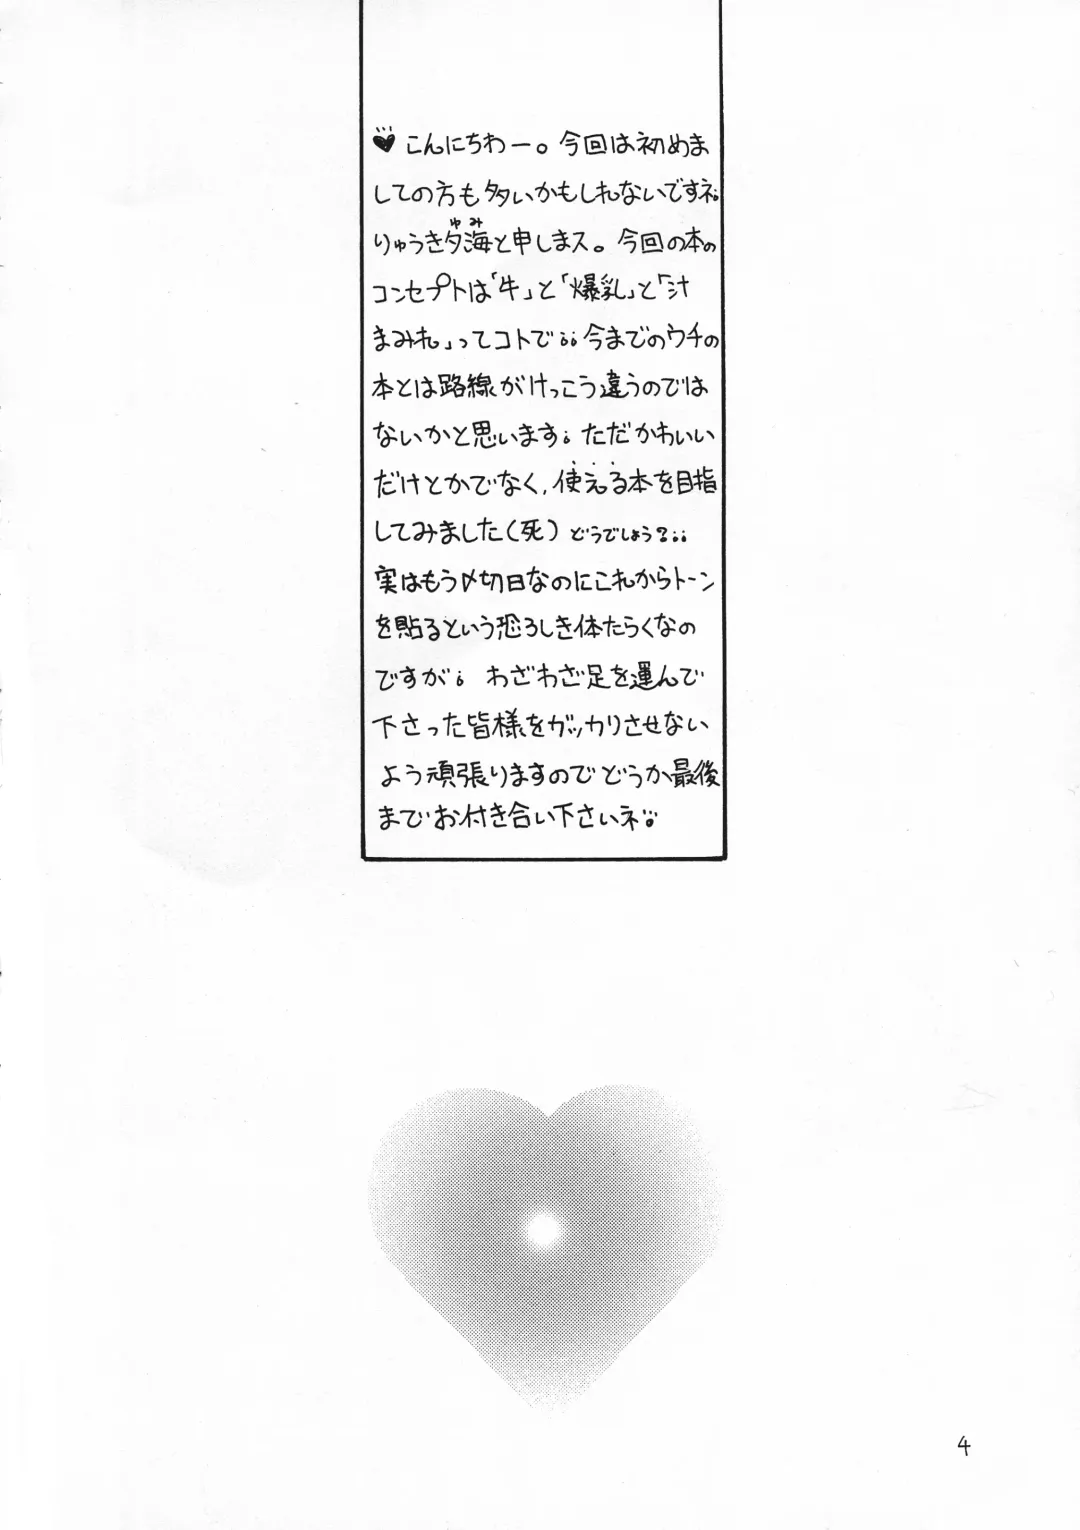 ♥こんにちわー。今回は初めま
しての方も多いかもしれないですネ。
りゅうき夕海と申しまス。今回の本の
ゆみ
コンセプトは「牛」と「爆乳」と「汁
まみれ」ってコトで。。今までのウチの
本とは路線がけっこう違うのでは
ないかと思います。ただかわいい
だけとかでなく、使える本を目指
してみました(死) どうでしょう?。。
実はもう〆切日なのにこれからトーン
を貼るという恐ろしき体たらくなの
ですが。 わざわざ足を運んで
下さった皆様をガッカリさせない
よう頑張りますのでどうか最後
までお付き合い下さいネ。
4